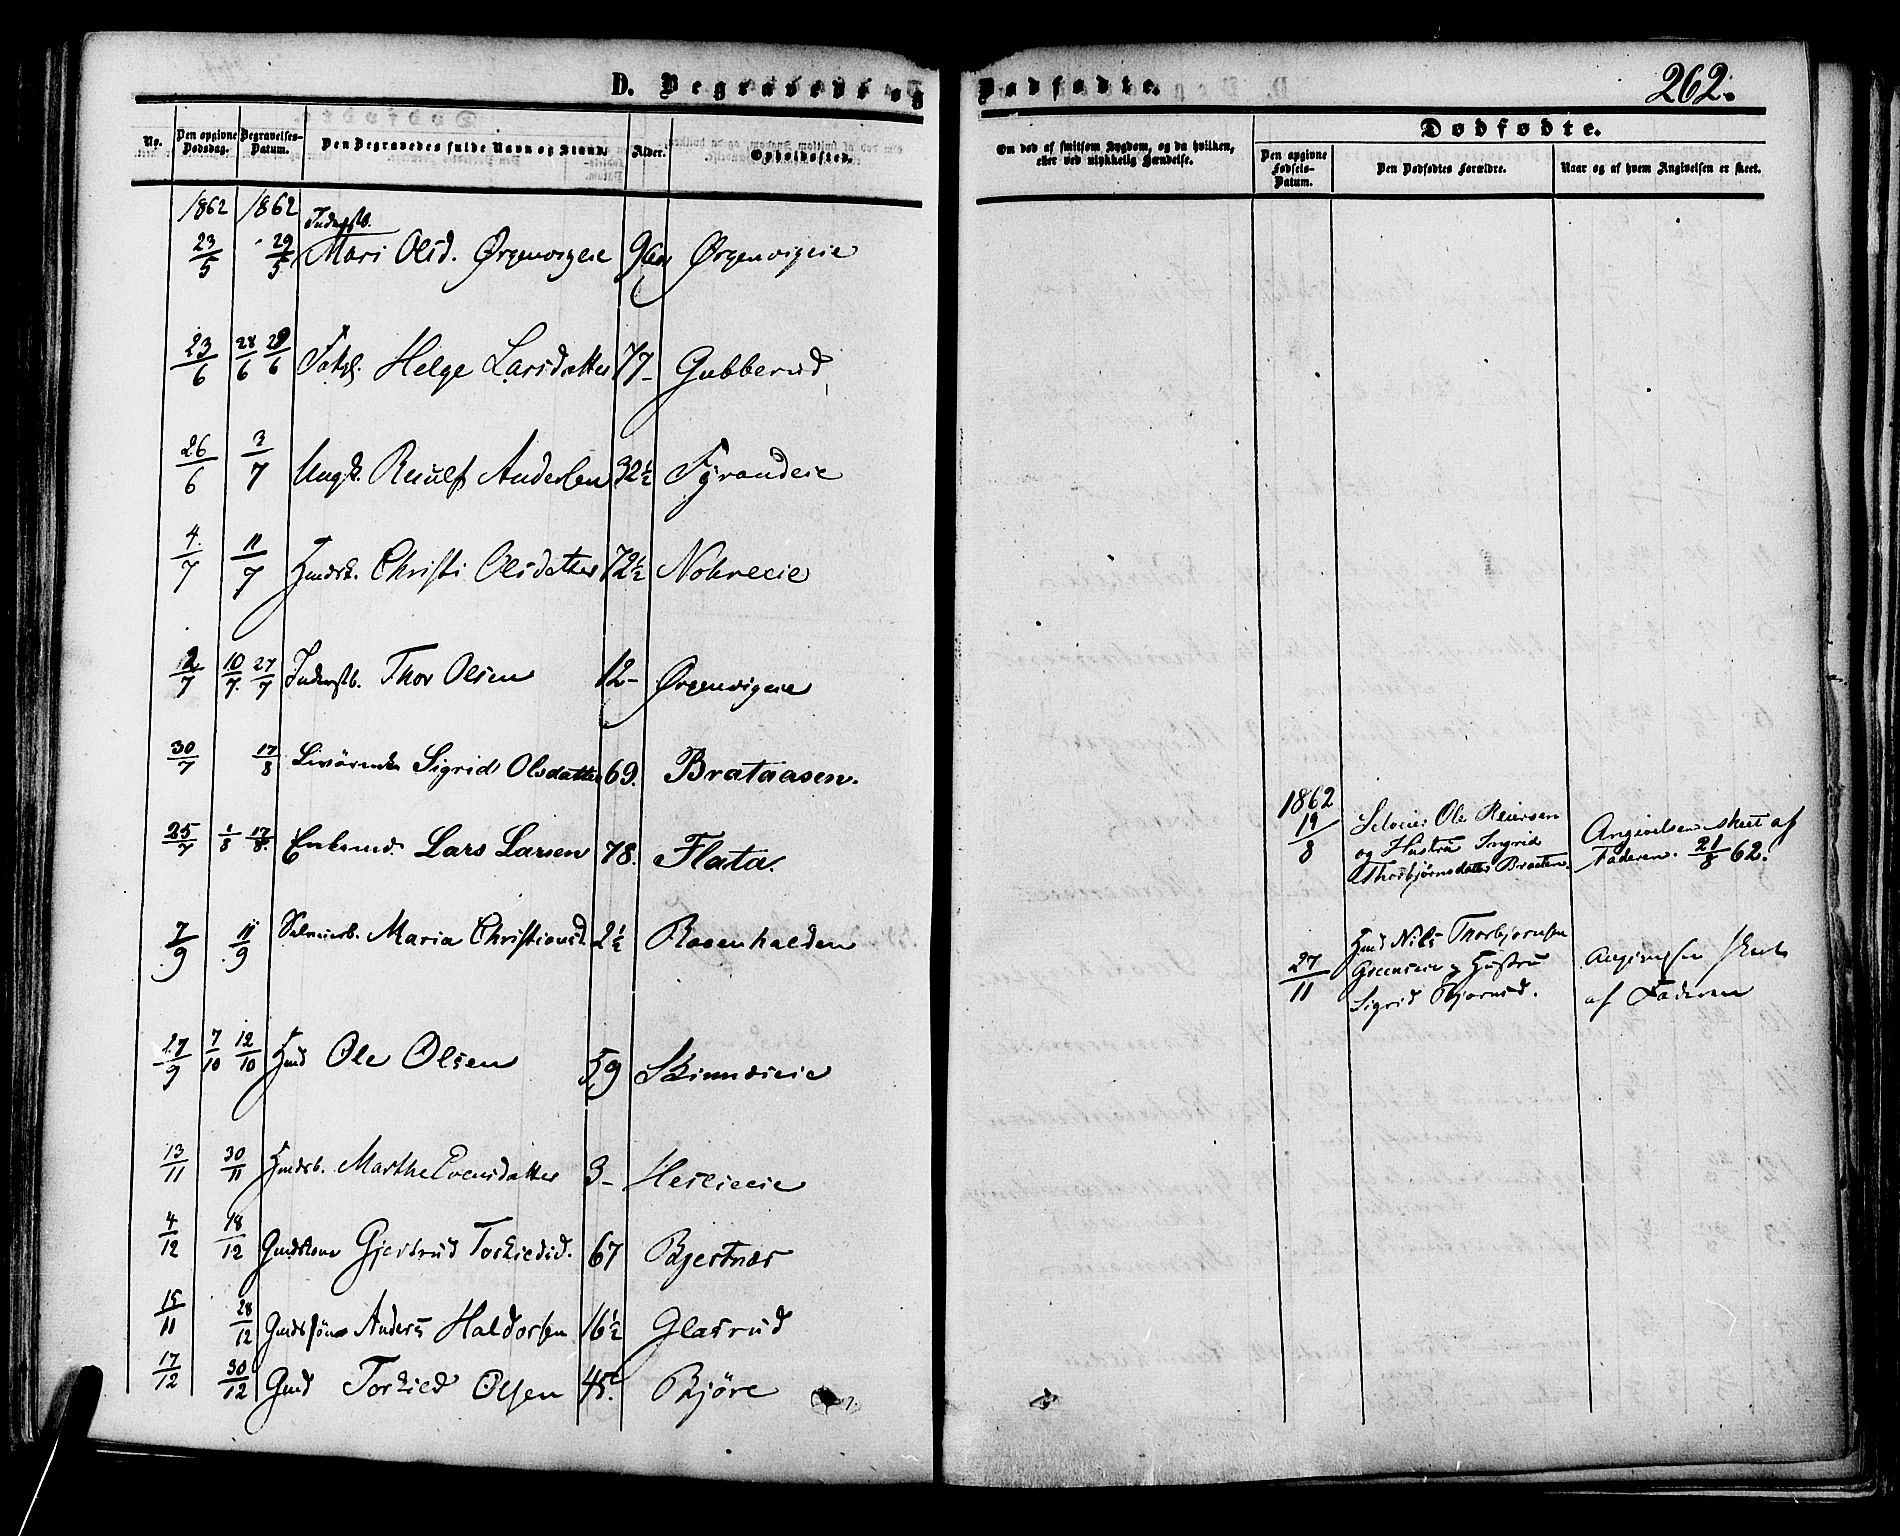 262.
D. Begravede og Dødfødte.
No. Den opgivne Dødsdag. Begravelses-Datum. Den Begravedes fulde Navn og Stand. Alder. Opholdssted. Om død af smitsom Sygdom, og da hvilken, eller ved ulykkelig Hændelse.
Dødfødte.
Den opgivne Fødsels-Datum. Den Dødfødtes Forældre. Naar og af hvem Angivelsen er skeet.
1862 1862
Inderstb.
23/5 29/5 Mari Olsd. Ørgenvigeie Ørgenvigeie
23/6 28/6 29/6 Helge Larsdatter 77- Gubberud
26/6 3/7 Ungk. Andersen 32½ Fyrandeie
4/7 11/7 Hmdsk. Christi Olsdatter 72½ Nobreeie
12/7 10/7 27/7 Inderstb. Thor Olsen 12- Ørgenvigeie
30/7 17/8 Sigrid Olsdatter 69. Brataasen.
25/7 1/8 17/8 Enkemd. Lars Larsen 78. Flata.
7/9 11/9 Selveierb. Maria Christiansd. 2½ Rosenhalden
27/9 7/10 12/10 Hmd Ole Olsen 59 Skinneseie
13/11 30/11 Hmdsb. Marthe Evensdatter 3-
4/12 18/12 Gmdskone Gjertrud Torkildsd. 67 Bjertnæs
15/11 28/12 Gmdssøn Anders Haldorsen 16½ Glasrud
17/12 30/12 Gmd Torkild Olsen 45. Bjøre
1862
19/8 Selveier Ole Reiersen
og Hustru Ingrid
Thorbjørnsdatter Braaten.
Angivelsen skeet af
Faderen. 21/8 62.
27/11 Hmd Nils Thorbjørnsen
og Hustru
Sigrid
Angivelsen skeet
af Faderen